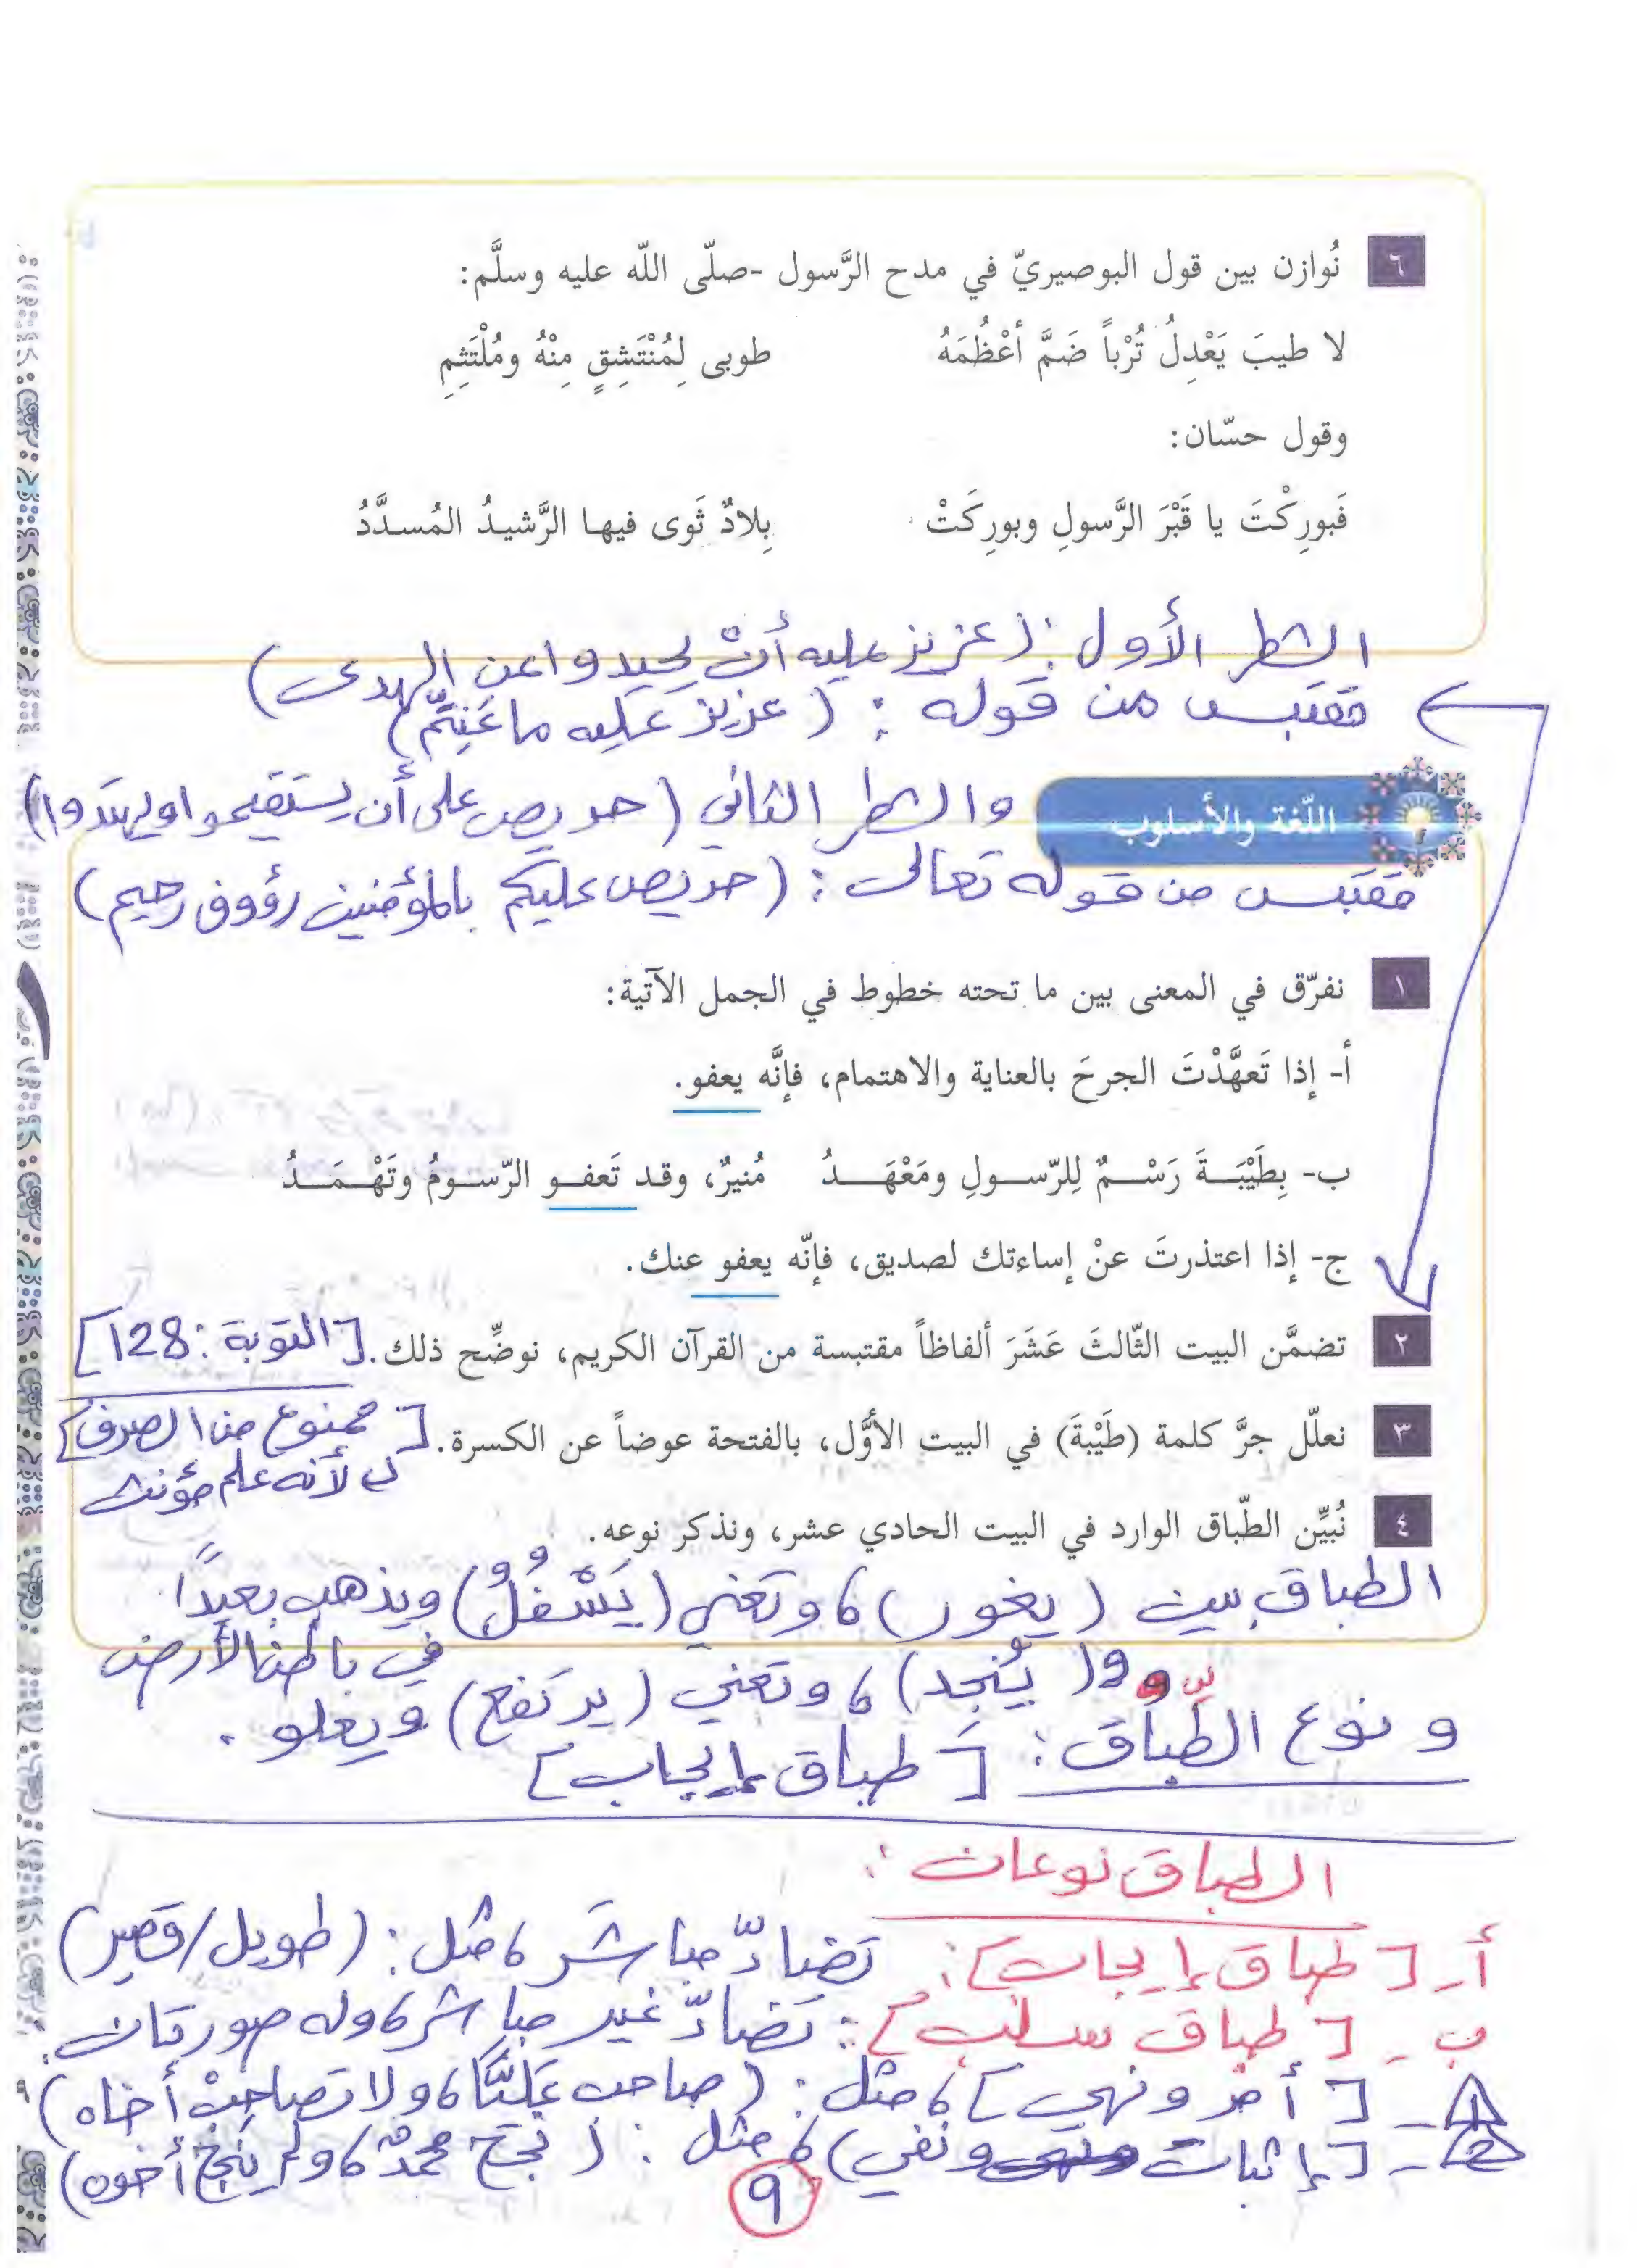 ٦ نُوازن بين قول البوصيريّ في مدح الرَّسول -صلّى اللّه عليه وسلَّم:
لا طيبَ يَعْدِلُ تُرْباً ضَمَّ أعْظُمَهُ طوبى لِمُنْتَشِقٍ مِنْهُ ومُلْتَثِمِ
وقول حسّان:
فَبورِكْتَ يا قَبْرَ الرَّسولِ وبورِكَتْ بِلادٌ ثَوى فيها الرَّشيدُ المُسدَّدُ
الشطر الأول: (عزيز عليه أنْ يحيدوا عن الهدى)
مقتبس من قوله: (عزيز عَليه ما عَنِتُّم)
اللّغة والأسلوب
والشطر الثاني (حريص على أن يستقيموا ويهتدوا)
مقتبس من قوله تعالى: (حريص عليكم بالمؤمنين رؤوف رحيم)
١ نفرّق في المعنى بين ما تحته خطوط في الجمل الآتية:
أ- إذا تَعهَّدْتَ الجرحَ بالعناية والاهتمام، فإنَّه يعفو.
ب- بِطَيْبَـةَ رَسْـمٌ لِلرّسـولِ ومَعْهَـدُ مُنيرٌ، وقد تَعفـو الرّسـومُ وتَهْـمَـدُ
ج- إذا اعتذرتَ عنْ إساءتك لصديق، فإنّه يعفو عنك.
٢ تضمَّن البيت الثّالثَ عَشَرَ ألفاظاً مقتبسة من القرآن الكريم، نوضِّح ذلك. [التوبة: 128]
٣ نعلّل جرَّ كلمة (طَيْبةَ) في البيت الأوَّل، بالفتحة عوضاً عن الكسرة. [ممنوع من الصرف]
لأنه علم مؤنث
٤ نُبيِّن الطّباق الوارد في البيت الحادي عشر، ونذكر نوعه.
الطباق بين (يغور)، وتعني (يَسْفُلُ) ويذهب بعيدًا
في باطن الأرض
و(يُنجد)، وتعني (يرتفع) ويعلو.
ونوع الطّباق: [طباق إيجاب]
الطباق نوعان:
أ- [طباق إيجاب]: تضادّ مباشر، مثل: (طويل/قصير)
ب- [طباق سلب]: تضادّ غير مباشر، وله صورتان:
1- [أمر ونهي]، مثل: (صاحب عَليًّا، ولا تصاحبْ أخاه)
2- [إثبات ونفي)، مثل: (نجح محمدٌ، ولم ينجح أخوه)
9